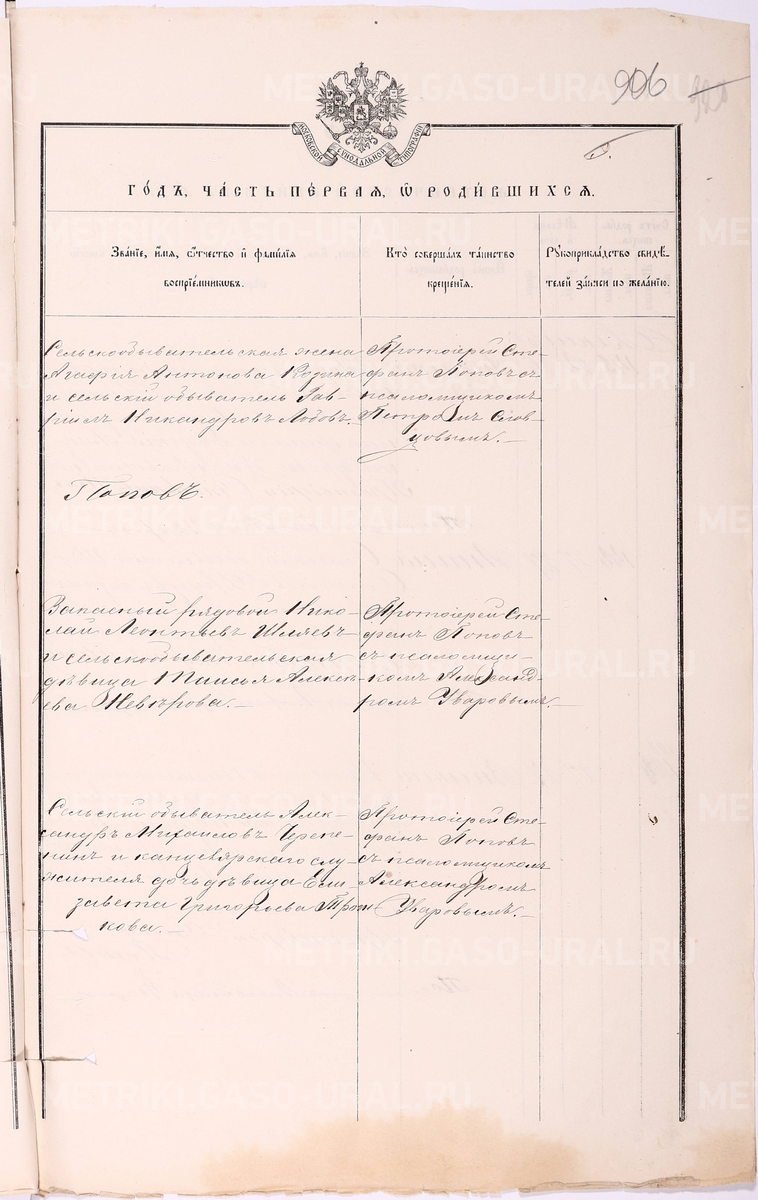 906
5.
МОСКОВСКОЙ СѴНОДАЛЬНОЙ ТИПОГРАФІИ
ГО́ДЪ, ЧА́СТЬ ПЕ́РВАЯ, Ѽ РОДИ́ВШИХСЯ.
Зва́нїе, и҆́мя, ѻ҆́тчество и҆ фами́лїя
воспрїе́мникѡвъ.
Кто̀ соверша́лъ та́инство
креще́нїя.
Рꙋкоприкла́дство свидѣ́-
телей за́писи по жела́нїю.
Сельскообывательская жена
Агафія Антонова Кодина
и сельскій обыватель Гав-
ріилъ Никандровъ Лобовъ.
Протоіерей Сте-
фанъ Поповъ съ
псаломщикомъ
Петромъ Слов-
цовымъ.
Поповъ.
Запасный рядовой Нико-
лай Леонтьевъ Шляевъ
и сельскообывательская
дѣвица Таисья Алексѣ-
ева Невѣрова.
Протоіерей Сте-
фанъ Поповъ
съ псаломщи-
комъ Александ-
ромъ Уваровымъ.
Сельскій обыватель Алек-
сандръ Михаиловъ Черепа-
нинъ и канцелярскаго слу-
жителя дочь дѣвица Ели
завета Григорьева
кова.
Протоіерей Сте-
фанъ Поповъ
съ псаломщикомъ
Александромъ
Уваровымъ.
METRIKI.GASO-URAL.RU